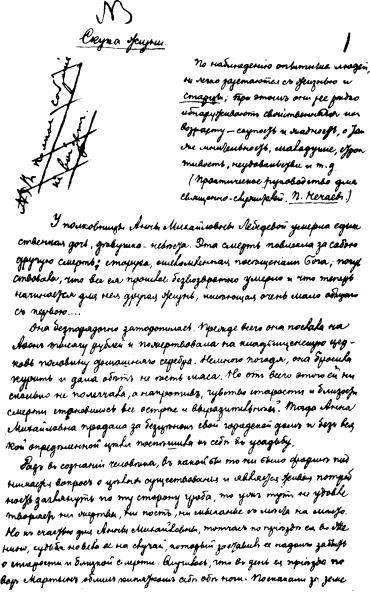 NB
Скука жизни.
1
По наблюдению опытных людей,
не легко расстаются съ жизнью и
старцы; при этомъ они не рѣдко
обнаруживаютъ свойственныя ихъ
возрасту — скупость и жадность, а так
же мнительность, малодушіе, строп
тивость, неудовольствіе и т. д.
(Практическое руководство для
священно-служителей. П. Нечаевъ.)
У полковницы Анны Михайловны Лебедевой умерла един
ственная дочь, дѣвушка-невѣста. Эта смерть повлекла за собою
другую смерть: старуха, ошеломленная посѣщеніемъ Бога, почув
ствовала, что все ея прошлое безвозвратно умерло и что теперь
начинается для нея другая жизнь, имѣющая очень мало общаго
съ первою....
Она безпорядочно заторопилась. Прежде всего она послала на
Аѳонъ тысячу рублей и пожертвовала на кладбищенскую цер
ковь половину домашняго серебра. Немного погодя, она бросила
курить и дала обѣтъ не ѣсть мяса. Но отъ всего этого ей ни
сколько не полегчало, а напротивъ, чувство старости и близости
смерти становилось все острее и выразительнѣй. Тогда Анна
Михайловна продала за безцѣнокъ свой городской домъ и безъ вся
кой опредѣленной цѣли поспѣшила къ себѣ въ усадьбу.
Разъ въ сознаніи человѣка, въ какой бы то ни было формѣ под
нимается вопросъ о цѣляхъ существованія и является живая потреб
ность заглянуть по ту сторону гроба, то ужъ тутъ не удовле
творяютъ ни жертва, ни постъ, ни мыканье съ мѣста на мѣсто.
Но къ счастью для Анны Михайловны, тотчасъ по пріѣздѣ ея въ Же
нино, судьба навела ее на случай, который заставилъ ее надолго забыть
о старости и близкой смерти. Случилось, что въ день ея пріѣзда по
варъ Мартынъ облилъ кипяткомъ себѣ обѣ ноги. Поскакали за земс